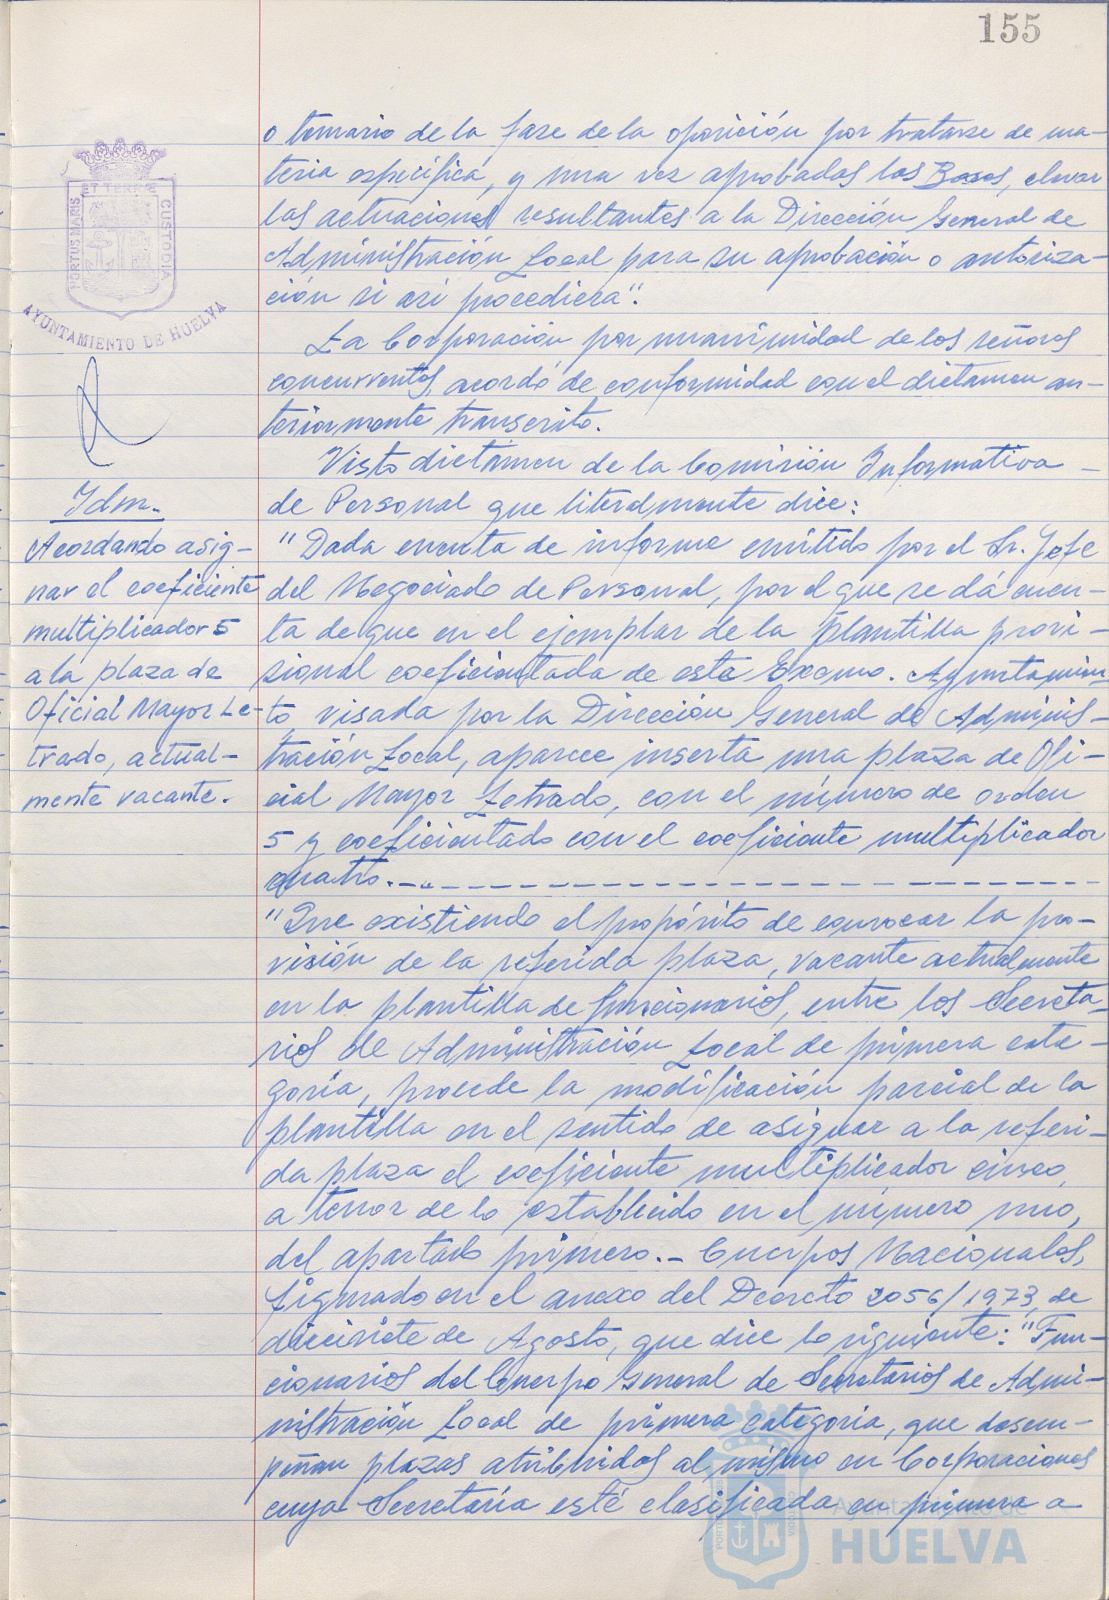 155
PORTUS MARIS
ET TERRAE
CUSTODIA
AYUNTAMIENTO DE HUELVA
o temario de la fase de la oposición por tratarse de ma-
teria específica, y una vez aprobadas las Bases, elevar
las actuaciones resultantes a la Dirección General de
Administración Local para su aprobación o autoriza-
ción si así procediera".
La Corporación por unanimidad de los señores
concurrentes, acordó de conformidad con el dictamen an-
teriormente transcrito.
Visto dictamen de la Comisión Informativa -
de Personal que literalmente dice:
Idm.-
Acordando asig-
nar el coeficiente
multiplicador 5
a la plaza de
Oficial Mayor Le-
trado, actual-
mente vacante.
"Dada cuenta de informe emitido por el Sr. Jefe
del Negociado de Personal, por el que se dá cuen-
ta de que en el ejemplar de la plantilla provi-
sional coeficientada de este Excmo. Ayuntamien-
to visada por la Dirección General de Adminis-
tración Local, aparece inserta una plaza de Ofi-
cial Mayor Letrado, con el número de orden
5 y coeficientado con el coeficiente multiplicador
cuatro.-
"Que existiendo el propósito de convocar la pro-
visión de la referida plaza, vacante actualmente
en la plantilla de funcionarios, entre los Secreta-
rios de Administración Local de primera cate-
goría, procede la modificación parcial de la
plantilla en el sentido de asignar a la referi-
da plaza el coeficiente multiplicador cinco,
a tenor de lo establecido en el número uno,
del apartado primero.- Cuerpos Nacionales,
figurado en el anexo del Decreto 2056/1973, de
diecisiete de Agosto, que dice lo siguiente: "Fun-
cionarios del Cuerpo General de Secretarios de Admi-
nistración Local de primera categoría, que desem-
peñan plazas atribuidas al mismo en Corporaciones
cuya Secretaría esté clasificada en primera a
Ayuntamiento de
HUELVA